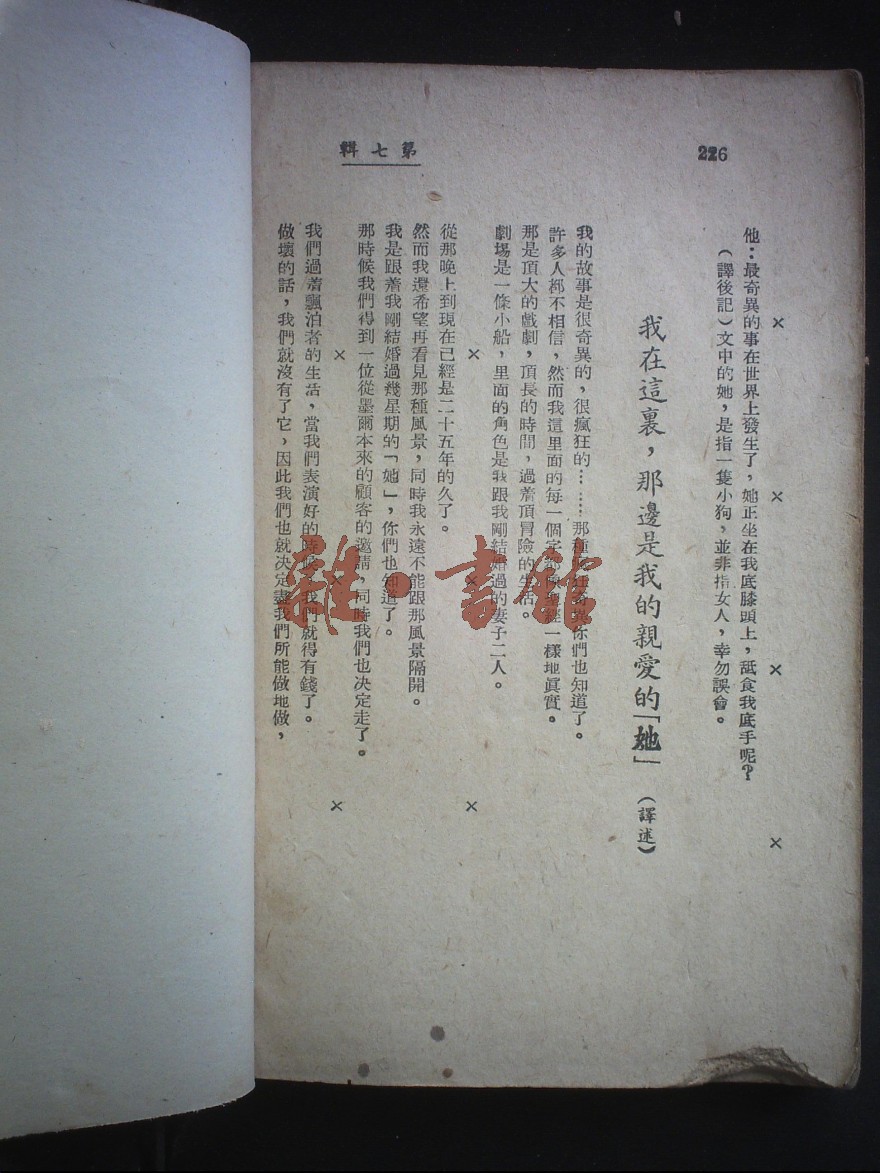 226
第七輯
× × × ×
他：最奇異的事在世界上發生了，她正坐在我底膝頭上，舐食我底手呢？
（譯後記）文中的她，是指一隻小狗，並非指女人，幸勿誤會。
我在這裏，那邊是我的親愛的「她」（譯述）
我的故事是很奇異的，很瘋狂的……那種瘋狂奇異你們也知道了。
許多人都不相信，然而我這里面的每一個字都像聖經一樣地眞實。
那是頂大的戲劇，頂長的時間，過着頂冒險的生活。
劇場是一條小船，里面的角色是我跟我剛結婚過的妻子二人。
× × ×
從那晚上到現在已經是二十五年的久了。
然而我還希望再看見那種風景，同時我永遠不能跟那風景隔開。
我是跟着我剛結婚過幾星期的「她」，你們也知道了。
那時候我們得到一位從墨爾本來的顧客的邀請，同時我們也决定走了。
× × ×
我們過着飄泊者的生活，當我們表演好的時候，我們就得有錢了。
做壞的話，我們就沒有了它，因此我們也就决定盡我們所能做地做，
雜·書館